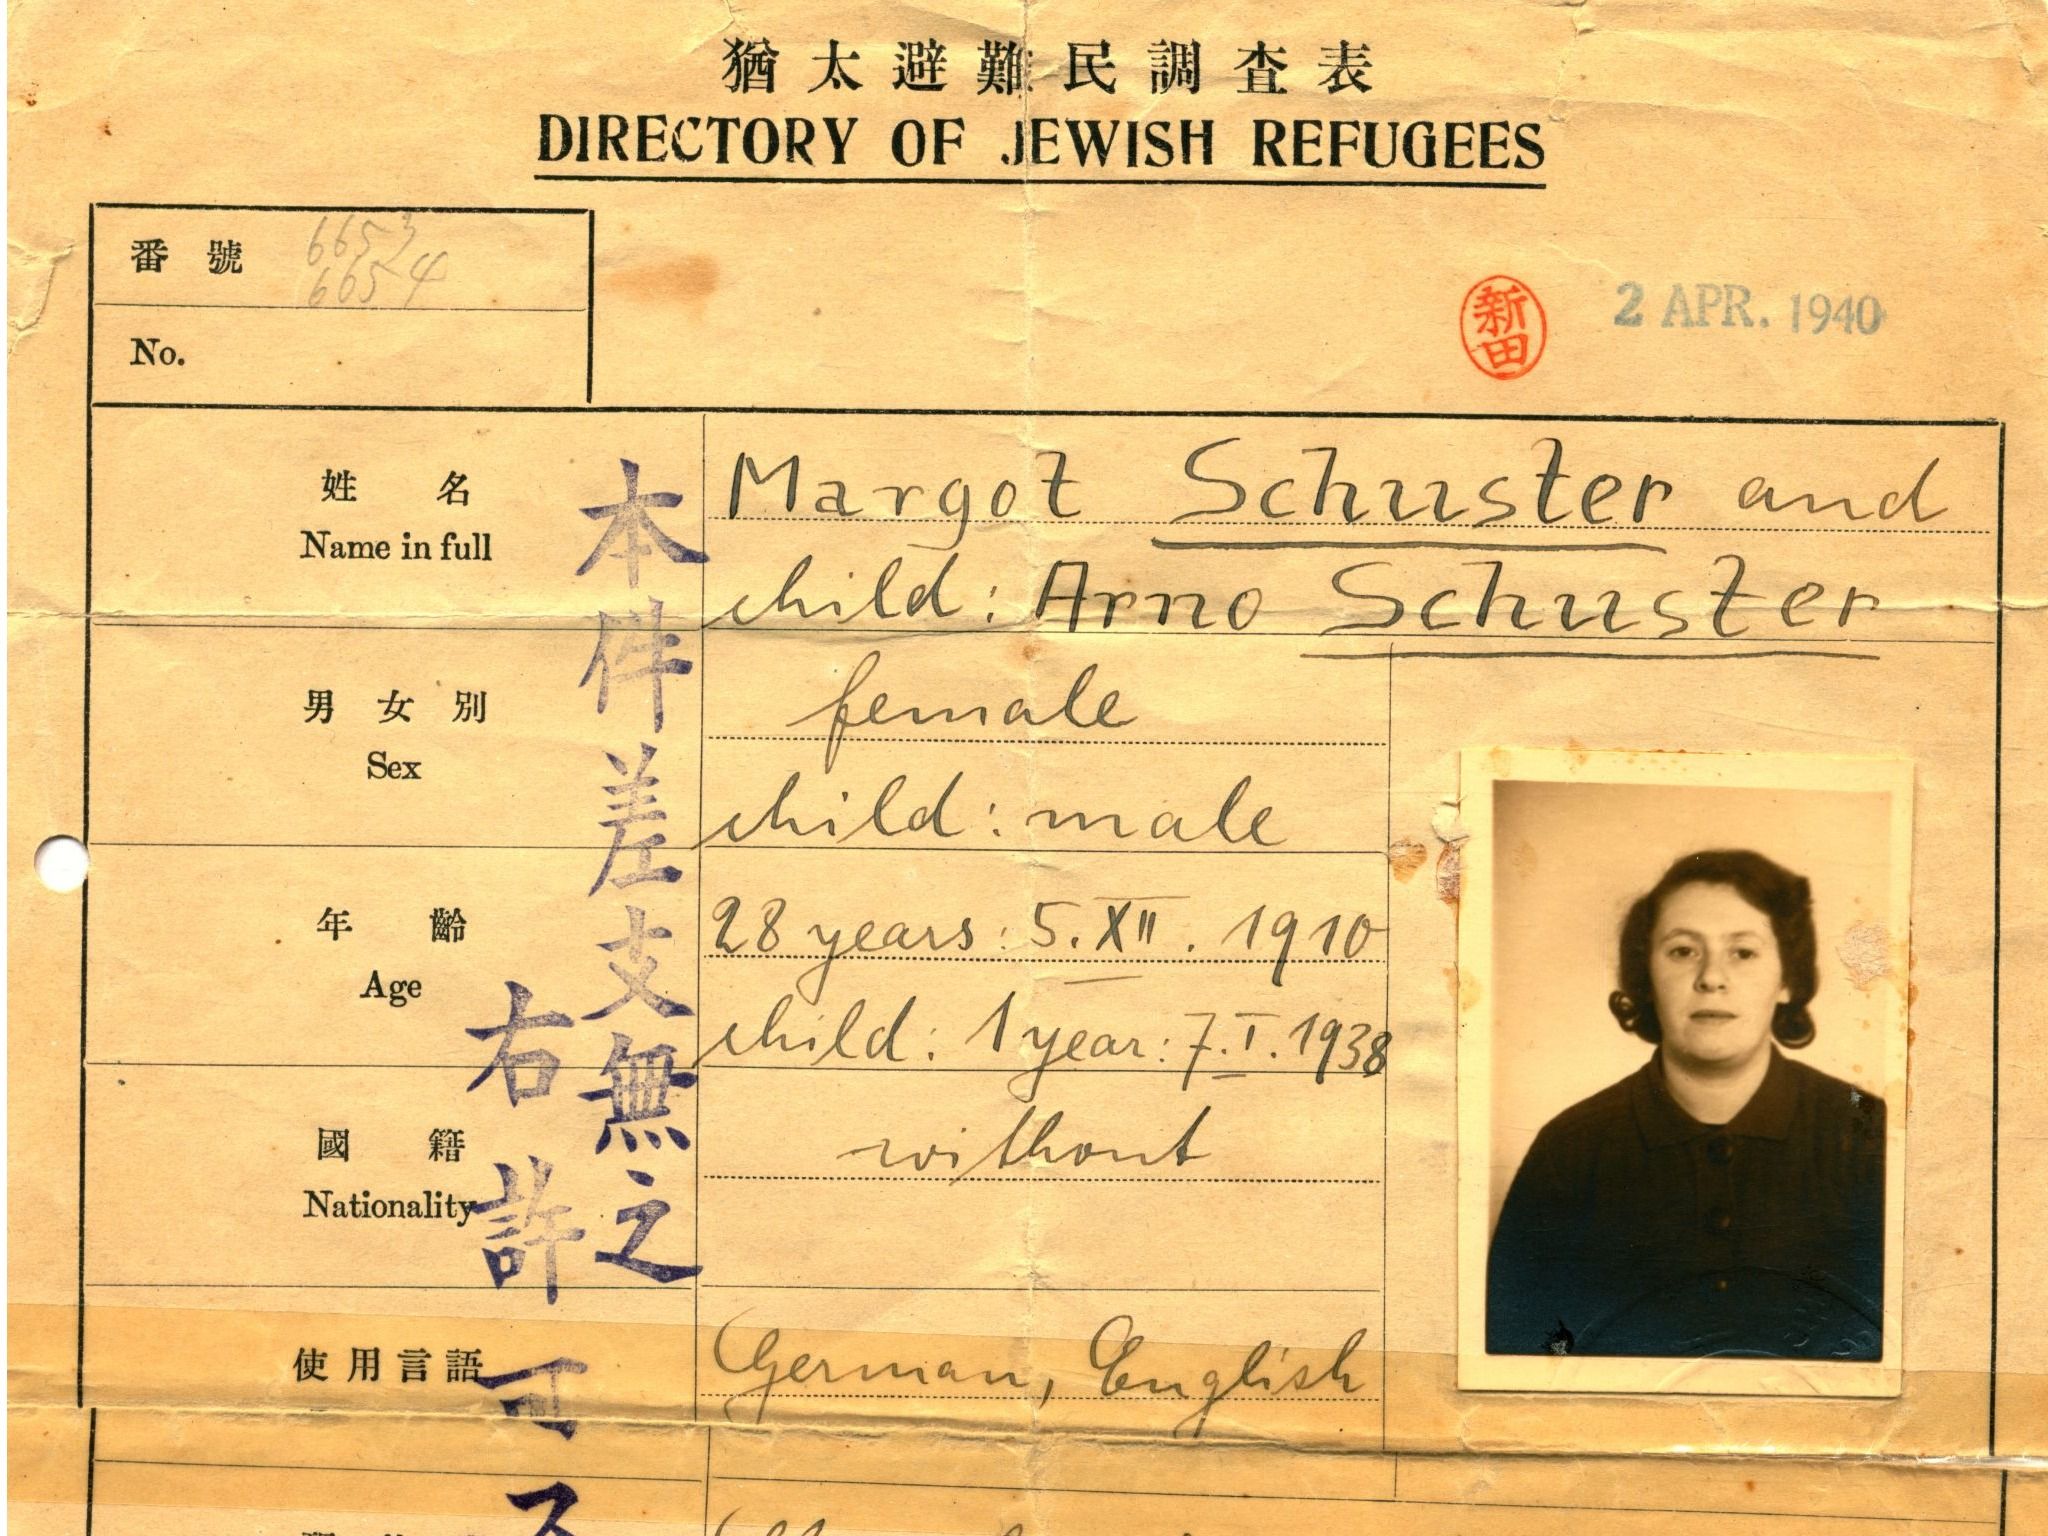 猶太避難民調査表
DIRECTORY OF JEWISH REFUGEES
番號 6653
6654
No.
新田
2 APR. 1940
姓名
Name in full
Margot Schuster and
child: Arno Schuster
男女別
Sex
female
child: male
年齡
Age
28 years: 5. XII. 1910
child: 1 year: 7. I. 1938
國籍
Nationality
without
使用言語
German, English
本件差支無之
右許可ス